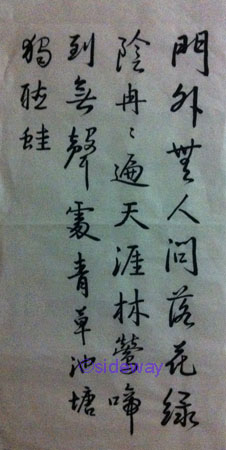 門外無人問落花綠
陰冉々遍天涯林鶯啼
到無聲處青草池塘
獨聽蛙
©sideway